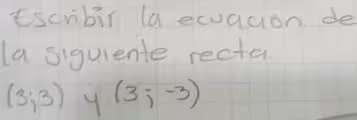 Escribir la ecuación de
la siguiente recta
(3;3) y (3; -3)